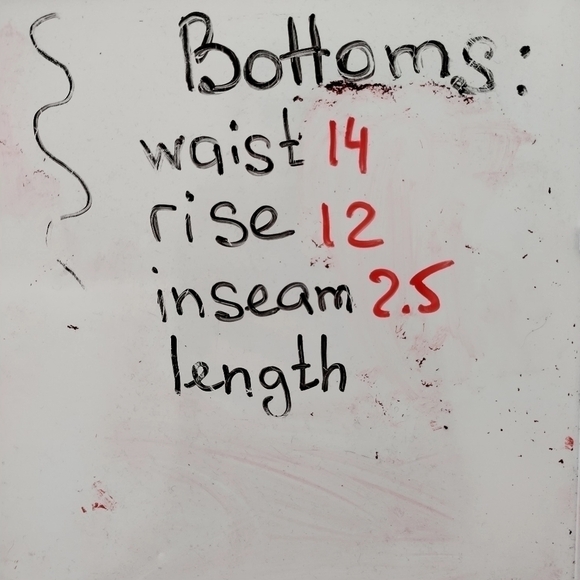 Bottoms:
waist 14
rise 12
inseam 2.5
length